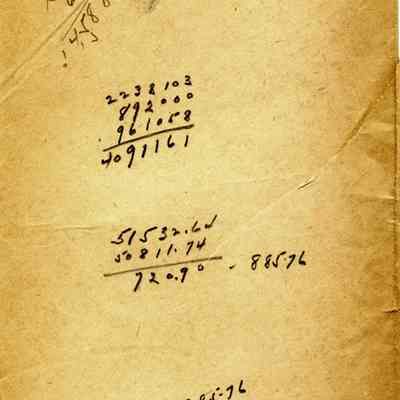 2238103
892000
961058
4091161
51532.64
50811.74
720.90 - 885.76
85.76